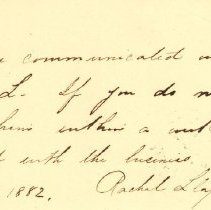 communicated
L. If you do n
within a
with the business.
1882. Rachel Ll